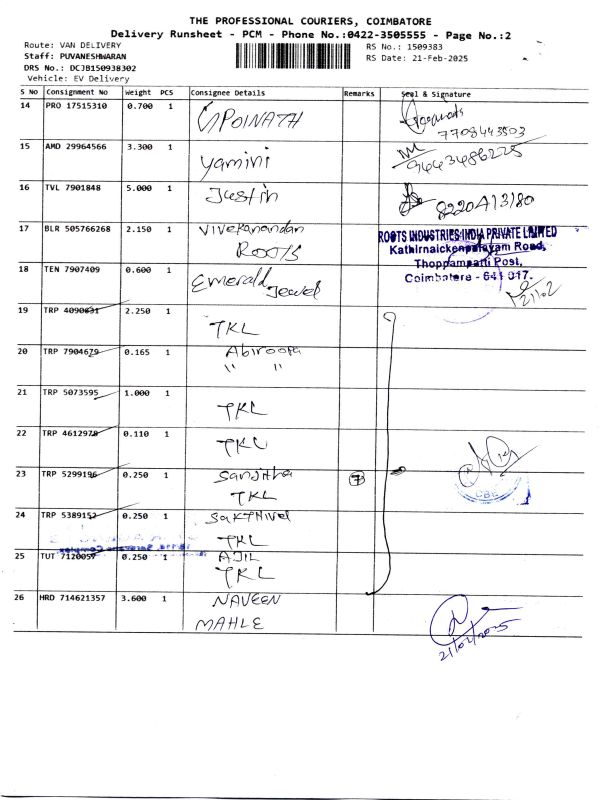 THE PROFESSIONAL COURIERS, COIMBATORE
Delivery Runsheet - PCM - Phone No.:0422-3505555 - Page No.:2
Route: VAN DELIVERY
RS No.: 1509383
Staff: PUVANESHWARAN
RS Date: 21-Feb-2025
DRS No.: DCJB1509383O2
Vehicle: EV Delivery
S No Consignment No Weight PCS Consignee Details Remarks Seal & Signature
14 PRO 17515310 0.700 1 GPOINATH
7708443503
15 AMD 29964566 3.300 1 yamini 9443486225
16 TVL 7901848 5.000 1 Justin 8220413180
17 BLR 505766268 2.150 1 Vivekanandan
ROOTS
ROOTS INDUSTRIES INDIA PRIVATE LIMITED
Kathirnaickenpalayam Road,
Thoppampatti Post,
Coimbatore - 641 017.
21/02
18 TEN 7907409 0.600 1 Emerald Jewel
19 TRP 4090831 2.250 1
TKL
20 TRP 7904679 0.165 1 Abiroopa
" "
21 TRP 5073595 1.000 1
TKL
22 TRP 4612978 0.110 1
TKL
23 TRP 5299196 0.250 1 Sanjitha 7
TKL
CBE
24 TRP 5389152 0.250 1 SAKTHIVEL
TKL
25 TUT 7120057 0.250 1 AJIL
TKL
26 HRD 714621357 3.600 1 NAVEEN
MAHLE
21/02/2025